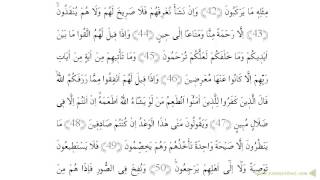 مِثْلِهِ مَا يَرْكَبُونَ ﴿42﴾ وَإِنْ نَشَأْ نُغْرِقْهُمْ فَلَا صَرِيخَ لَهُمْ وَلَا هُمْ يُنْقَذُونَ
﴿43﴾ إِلَّا رَحْمَةً مِنَّا وَمَتَاعًا إِلَى حِينٍ ﴿44﴾ وَإِذَا قِيلَ لَهُمُ اتَّقُوا مَا بَيْنَ
أَيْدِيكُمْ وَمَا خَلْفَكُمْ لَعَلَّكُمْ تُرْحَمُونَ ﴿45﴾ وَمَا تَأْتِيهِمْ مِنْ آيَةٍ مِنْ آيَاتِ
رَبِّهِمْ إِلَّا كَانُوا عَنْهَا مُعْرِضِينَ ﴿46﴾ وَإِذَا قِيلَ لَهُمْ أَنْفِقُوا مِمَّا رَزَقَكُمُ اللَّهُ
قَالَ الَّذِينَ كَفَرُوا لِلَّذِينَ آمَنُوا أَنُطْعِمُ مَنْ لَوْ يَشَاءُ اللَّهُ أَطْعَمَهُ إِنْ أَنْتُمْ إِلَّا فِي
ضَلَالٍ مُبِينٍ ﴿47﴾ وَيَقُولُونَ مَتَى هَذَا الْوَعْدُ إِنْ كُنْتُمْ صَادِقِينَ ﴿48﴾ مَا
يَنْظُرُونَ إِلَّا صَيْحَةً وَاحِدَةً تَأْخُذُهُمْ وَهُمْ يَخِصِّمُونَ ﴿49﴾ فَلَا يَسْتَطِيعُونَ
تَوْصِيَةً وَلَا إِلَى أَهْلِهِمْ يَرْجِعُونَ ﴿50﴾ وَنُفِخَ فِي الصُّورِ فَإِذَا هُمْ مِنَ